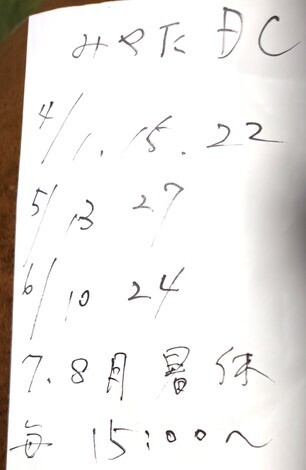 みやたDC
4/1.15.22
5/13 27
6/10 24
7.8月暑休
毎 15:00〜